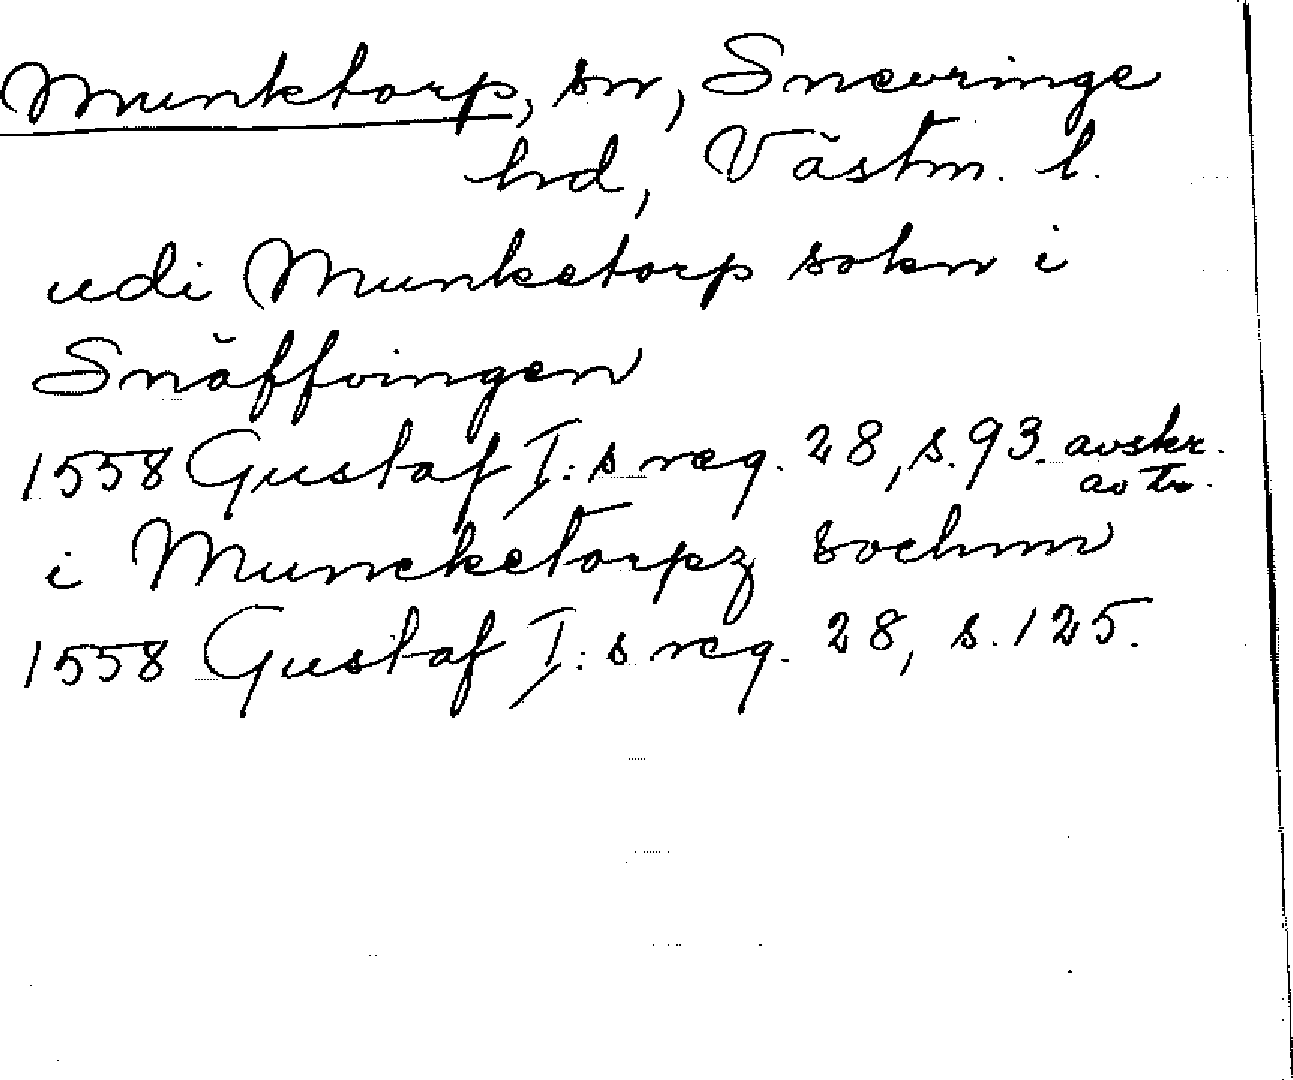 Munktorp, sn, Snevringe
hd, Västm. l.
udi Munketorp sokn i
Snäffvingen
1558 Gustaf I:s reg. 28, s. 93. avskr.
av tr.
i Muncketorpz sochnn
1558 Gustaf I:s reg. 28, s. 125.